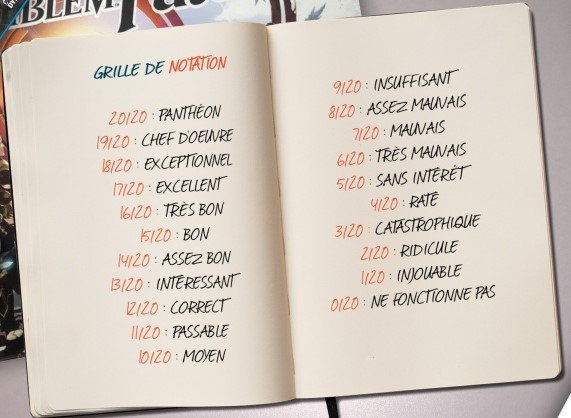 GRILLE DE NOTATION
20/20 : PANTHÉON
19/20 : CHEF D'OEUVRE
18/20 : EXCEPTIONNEL
17/20 : EXCELLENT
16/20 : TRÈS BON
15/20 : BON
14/20 : ASSEZ BON
13/20 : INTÉRESSANT
12/20 : CORRECT
11/20 : PASSABLE
10/20 : MOYEN
9/20 : INSUFFISANT
8/20 : ASSEZ MAUVAIS
7/20 : MAUVAIS
6/20 : TRÈS MAUVAIS
5/20 : SANS INTÉRÊT
4/20 : RATÉ
3/20 : CATASTROPHIQUE
2/20 : RIDICULE
1/20 : INJOUABLE
0/20 : NE FONCTIONNE PAS